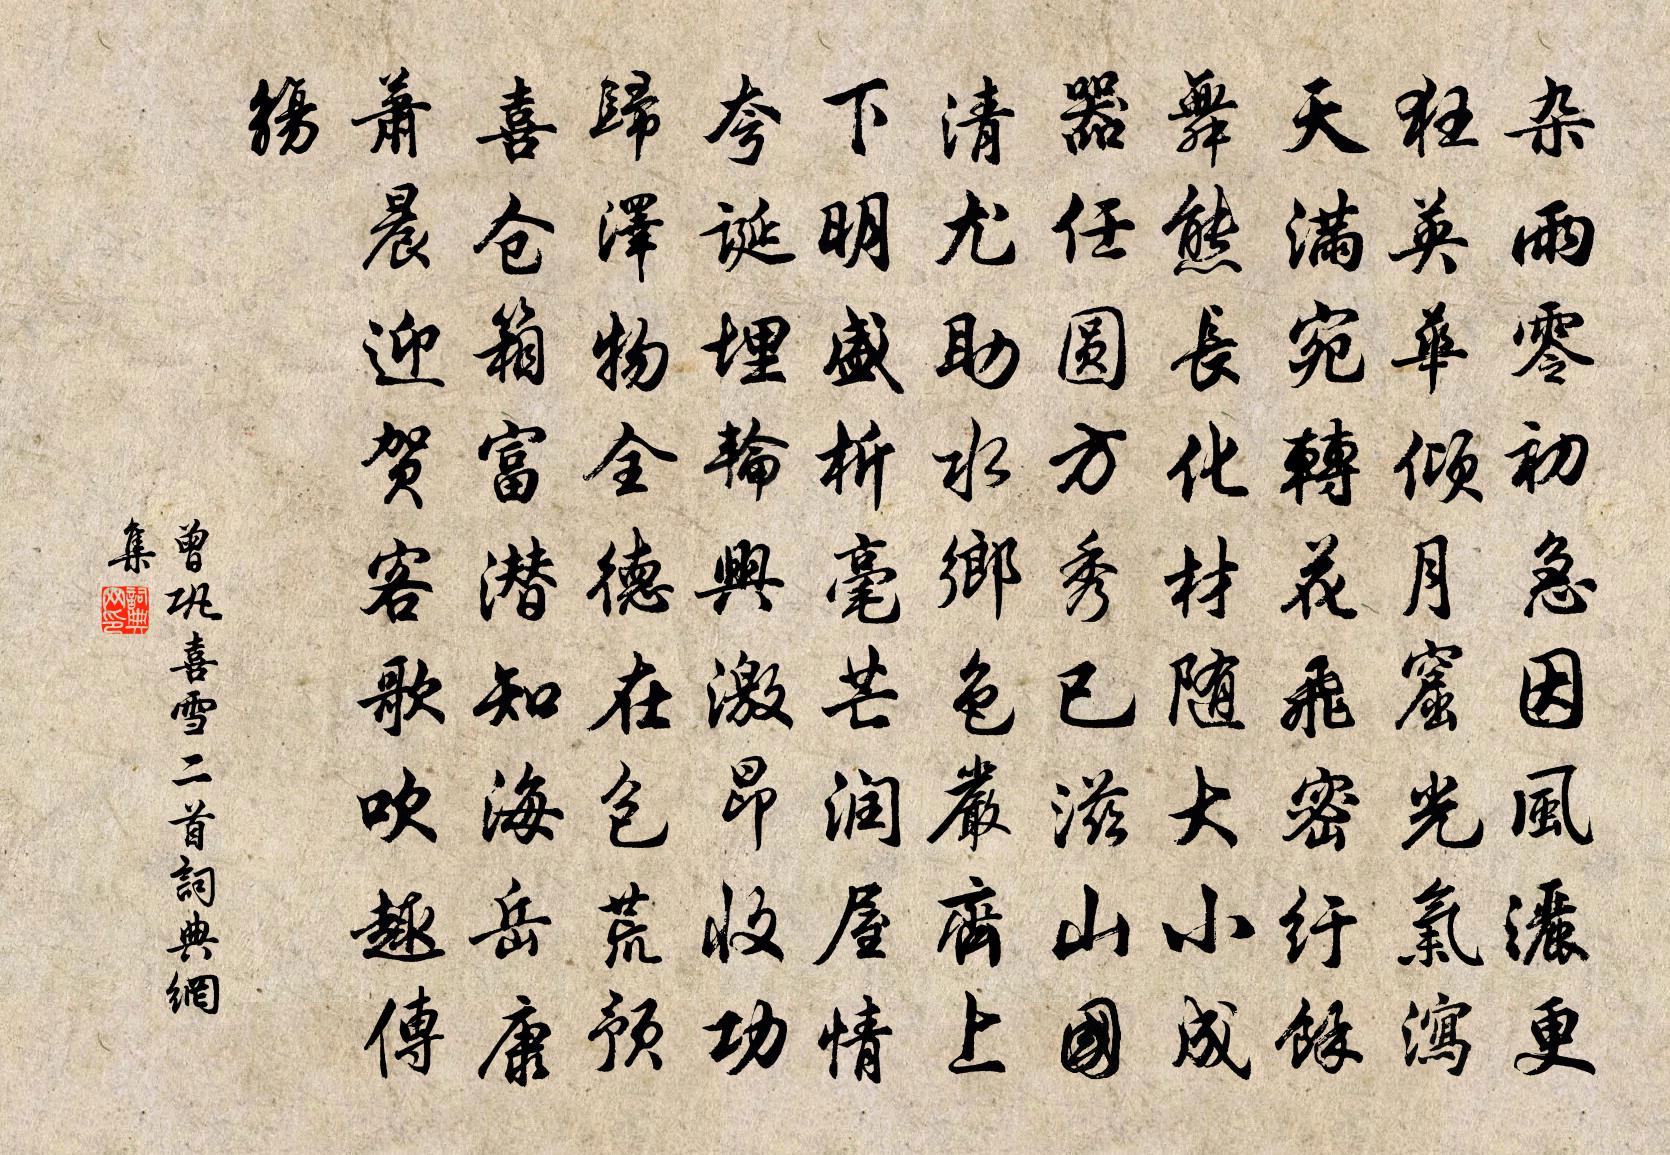 杂雨零初急因風灑更
狂英華傾月窟光氣瀉
天滿宛轉花飛密紆餘
舞態長化材随大小成
器任圆方秀已滋山國
清尤助水鄉色嚴齊上
下明盛析毫芒润屋情
夸誕埋輪興激昂收功
歸澤物全德在包荒预
喜仓箱富潜知海岳康
萧晨迎贺客歌吹趣傳
觞
曾巩喜雪二首詞典網
集
詞典网印